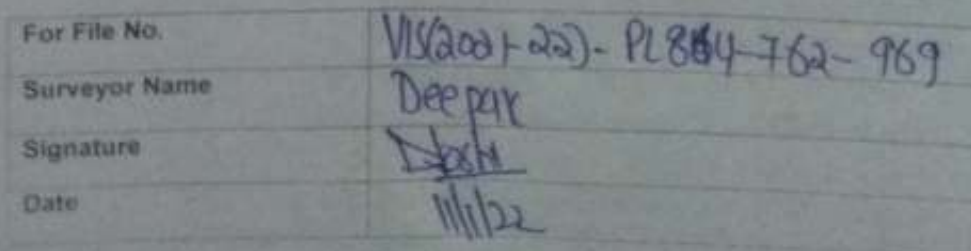 For File No. VIS(2021-22)-PL864-762-969
Surveyor Name Deepak
Signature Joshi
Date 11/1/22